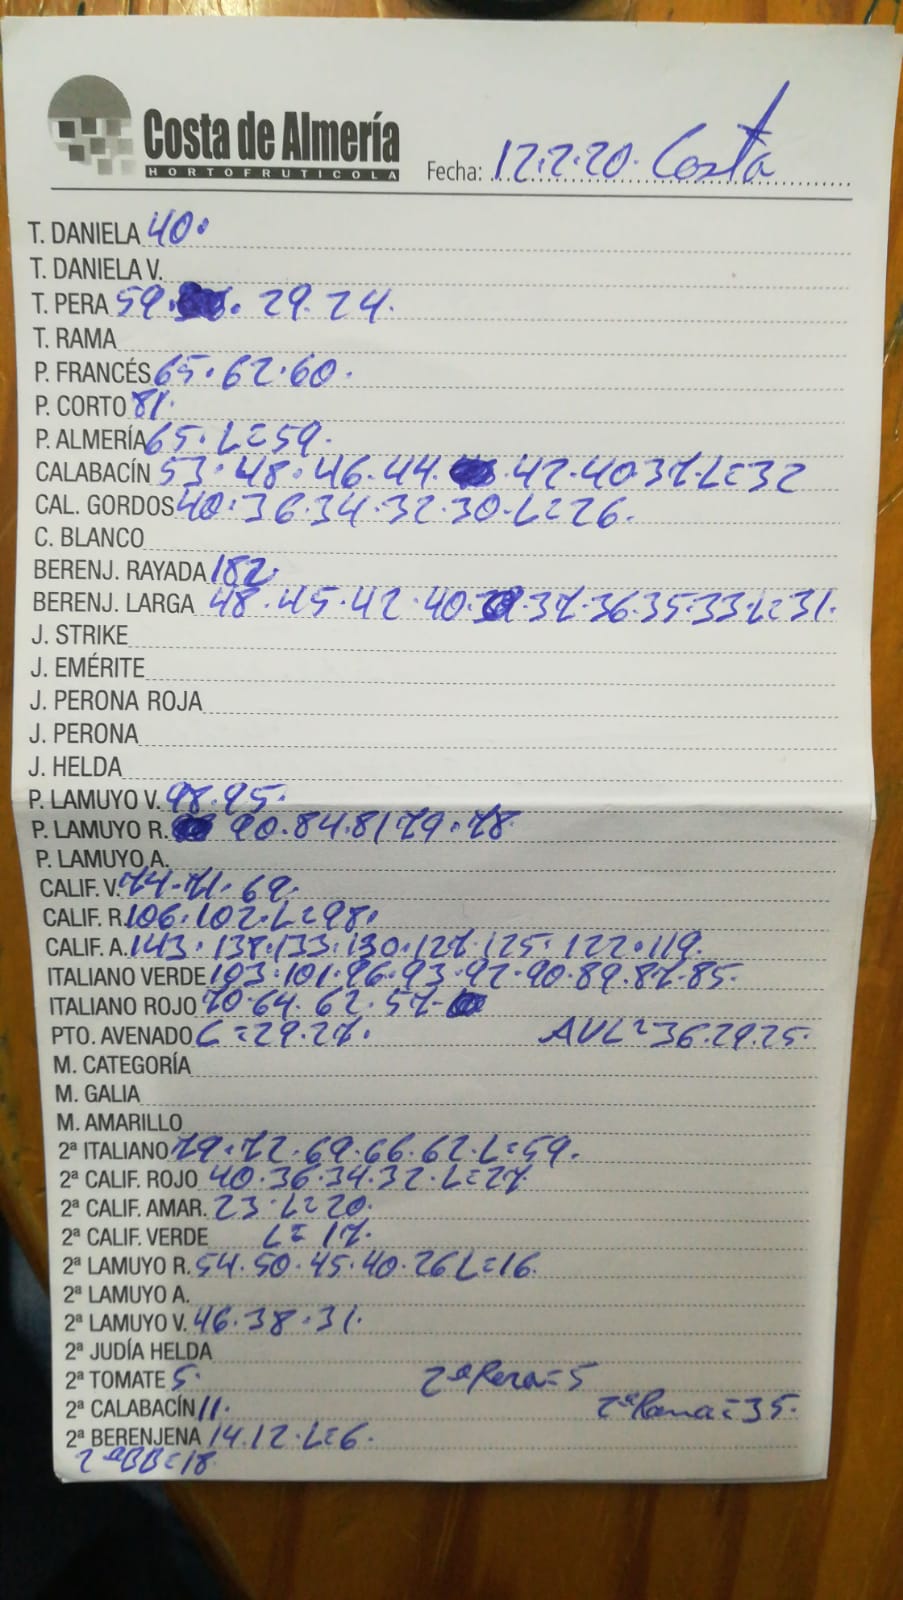 Costa de Almería
HORTOFRUTICOLA
Fecha: 12.2.20. Costa
T. DANIELA 40.
T. DANIELA V.
T. PERA 59. 29.24.
T. RAMA
P. FRANCÉS 65.62.60.
P. CORTO 81.
P. ALMERÍA 65. L=59.
CALABACÍN 53.48.46.44. .42.40.37.L=32
CAL. GORDOS 40.36.34.32.30.L=26.
C. BLANCO
BERENJ. RAYADA 182.
BERENJ. LARGA 48.45.42.40. .37.36.35.33.L=31.
J. STRIKE
J. EMÉRITE
J. PERONA ROJA
J. PERONA
J. HELDA
P. LAMUYO V. 98.95.
P. LAMUYO R. 90.84.81.79.78
P. LAMUYO A.
CALIF. V. 74.71.69.
CALIF. R. 106.102.L=98.
CALIF. A. 143.138.133.130.127.125.122.119.
ITALIANO VERDE 103.101.96.93.92.90.89.87.85.
ITALIANO ROJO 70.64.62.57.
PTO. AVENADO L=29.27. AVL=36.29.25.
M. CATEGORÍA
M. GALIA
M. AMARILLO
2ª ITALIANO 79.72.69.66.62.L=59.
2ª CALIF. ROJO 40.36.34.32.L=27
2ª CALIF. AMAR. 23.L=20.
2ª CALIF. VERDE L=17.
2ª LAMUYO R. 54.50.45.40.26 L=16.
2ª LAMUYO A.
2ª LAMUYO V. 46.38.31.
2ª JUDÍA HELDA
2ª TOMATE 5. 2ª Pera=5
2ª CALABACÍN 11. 2ª Rama=35.
2ª BERENJENA 14.12.L=6.
2ª BB=18